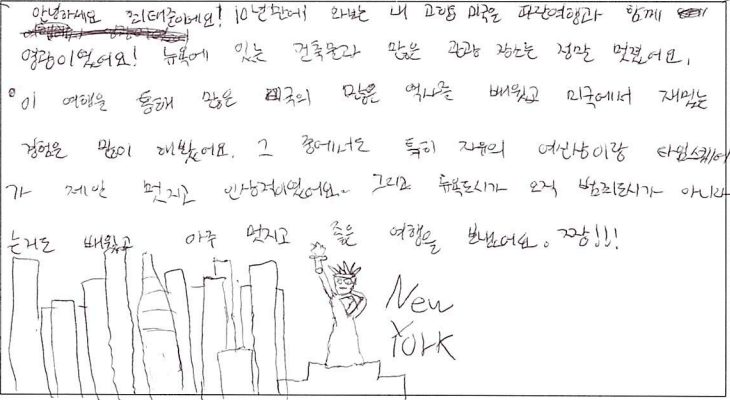 안녕하세요 최태준이에요! 10년만에 와보는 내 고향 미국을 파란여행과 함께
영광이였어요! 뉴욕에 있는 건축물과 많은 관광 장소는 정말 멋졌어요.
이 여행을 통해 많은 미국의 많은 역사를 배웠고 미국에서 재밌는
경험을 많이 해봤어요. 그 중에서도 특히 자유의 여신상이랑 타임스퀘어
가 제일 멋지고 인상적이였어요. 그리고 뉴욕도시가 오직 범죄도시가 아니라
는거도 배웠고 아주 멋지고 좋은 여행을 보냈어요. 짱!!!
New
York